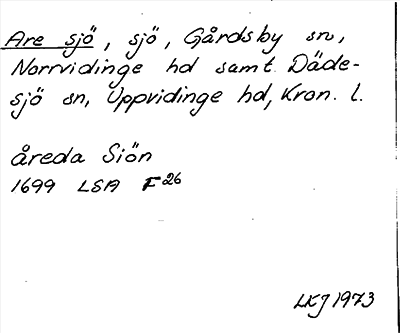 Are sjö, sjö, Gårdsby sn,
Norrvidinge hd samt Däde-
sjö sn, Uppvidinge hd, Kron. l.
åreda Siön
1699 LSA F26
LKJ 1973